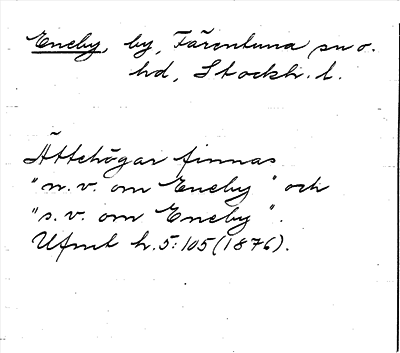 Eneby, by, Färentuna sn o.
hd, Stockh. l.
Ättehögar finnas
"n.v. om Eneby" och
"s.v. om Eneby".
Ufmt h.5:105(1876).